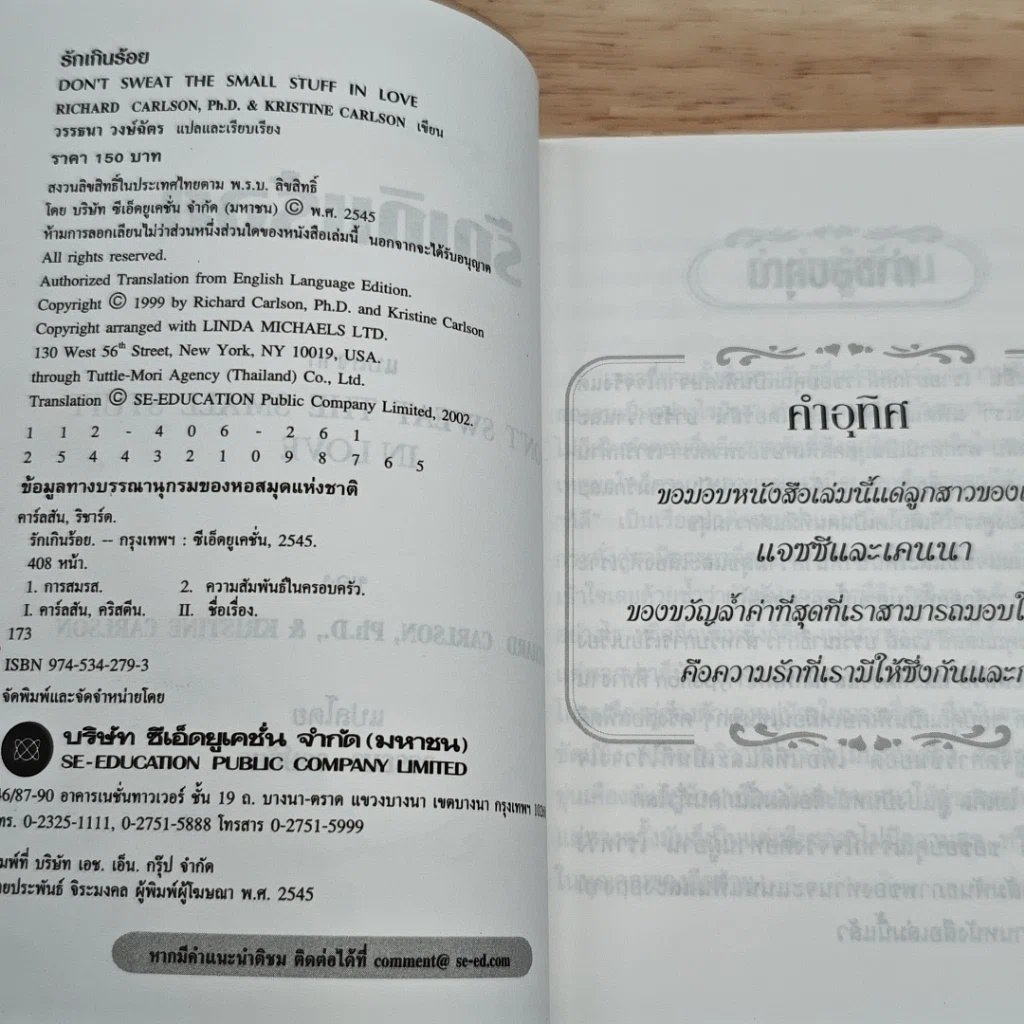 รักเกินร้อย
DON'T SWEAT THE SMALL STUFF IN LOVE
RICHARD CARLSON, Ph.D. & KRISTINE CARLSON เขียน
วรรธนา วงษ์ฉัตร แปลและเรียบเรียง
ราคา 150 บาท
สงวนลิขสิทธิ์ในประเทศไทยตาม พ.ร.บ. ลิขสิทธิ์
โดย บริษัท ซีเอ็ดยูเคชั่น จำกัด (มหาชน) © พ.ศ. 2545
ห้ามการลอกเลียนไม่ว่าส่วนหนึ่งส่วนใดของหนังสือเล่มนี้ นอกจากจะได้รับอนุญาต
All rights reserved.
Authorized Translation from English Language Edition.
Copyright © 1999 by Richard Carlson, Ph.D. and Kristine Carlson
Copyright arranged with LINDA MICHAELS LTD.
130 West 56th Street, New York, NY 10019, USA.
through Tuttle-Mori Agency (Thailand) Co., Ltd.
Translation © SE-EDUCATION Public Company Limited, 2002.
1 1 2 - 4 0 6 - 2 6 1
2 5 4 4 3 2 1 0 9 8 7 6 5
ข้อมูลทางบรรณานุกรมของหอสมุดแห่งชาติ
คาร์ลสัน, ริชาร์ด.
รักเกินร้อย. -- กรุงเทพฯ : ซีเอ็ดยูเคชั่น, 2545.
408 หน้า.
1. การสมรส. 2. ความสัมพันธ์ในครอบครัว.
I. คาร์ลสัน, คริสตีน. II. ชื่อเรื่อง.
173
ISBN 974-534-279-3
จัดพิมพ์และจัดจำหน่ายโดย
บริษัท ซีเอ็ดยูเคชั่น จำกัด (มหาชน)
SE-EDUCATION PUBLIC COMPANY LIMITED
46/87-90 อาคารเนชั่นทาวเวอร์ ชั้น 19 ถ. บางนา-ตราด แขวงบางนา เขตบางนา กรุงเทพฯ
โทร. 0-2325-1111, 0-2751-5888 โทรสาร 0-2751-5999
พิมพ์ที่ บริษัท เอช. เอ็น. กรุ๊ป จำกัด
นายประพันธ์ จิระมงคล ผู้พิมพ์ผู้โฆษณา พ.ศ. 2545
หากมีคำแนะนำติชม ติดต่อได้ที่ comment@ se-ed.com
คำอุทิศ
ขอมอบหนังสือเล่มนี้แด่ลูกสาวของ
แจซซีและเคนนา
ของขวัญล้ำค่าที่สุดที่เราสามารถมอบ
คือความรักที่เรามีให้ซึ่งกันและ